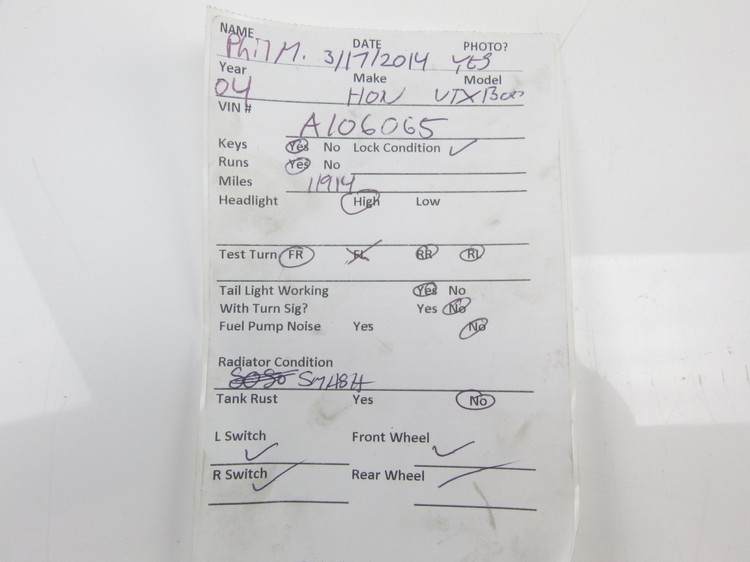 NAME DATE PHOTO?
Phil M. 3/17/2014 YES
Year Make Model
04 HON VTX1300
VIN #
A106065
Keys Yes No Lock Condition ✓
Runs Yes No
Miles 11914
Headlight High Low
Test Turn FR FL RR RL
Tail Light Working Yes No
With Turn Sig? Yes No
Fuel Pump Noise Yes No
Radiator Condition
SMASH
Tank Rust Yes No
L Switch Front Wheel
✓ ✓
R Switch Rear Wheel
✓